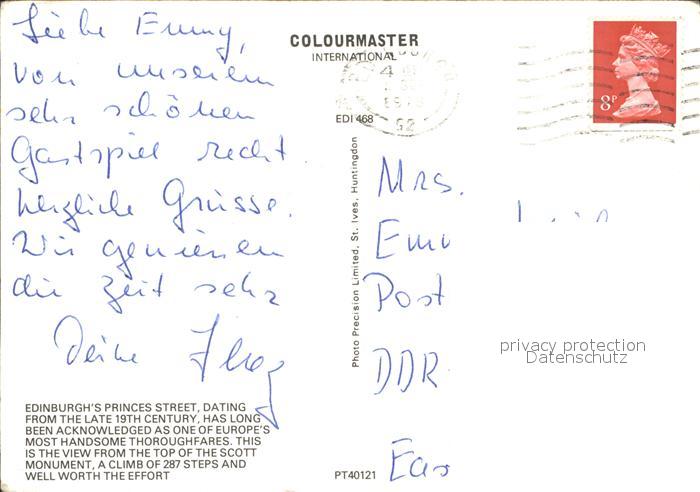 Liebe Emmy,
von unserem
sehr schönen
Gastspiel recht
herzliche Grüsse.
Wir geniessen
die Zeit sehr
Deine
EDINBURGH'S PRINCES STREET, DATING
FROM THE LATE 19TH CENTURY, HAS LONG
BEEN ACKNOWLEDGED AS ONE OF EUROPE'S
MOST HANDSOME THOROUGHFARES. THIS
IS THE VIEW FROM THE TOP OF THE SCOTT
MONUMENT, A CLIMB OF 287 STEPS AND
WELL WORTH THE EFFORT
COLOURMASTER
INTERNATIONAL
EDI 468
Photo Precision Limited, St. Ives, Huntingdon
PT40121
8P
Mrs.
Post
DDR
privacy protection
Datenschutz